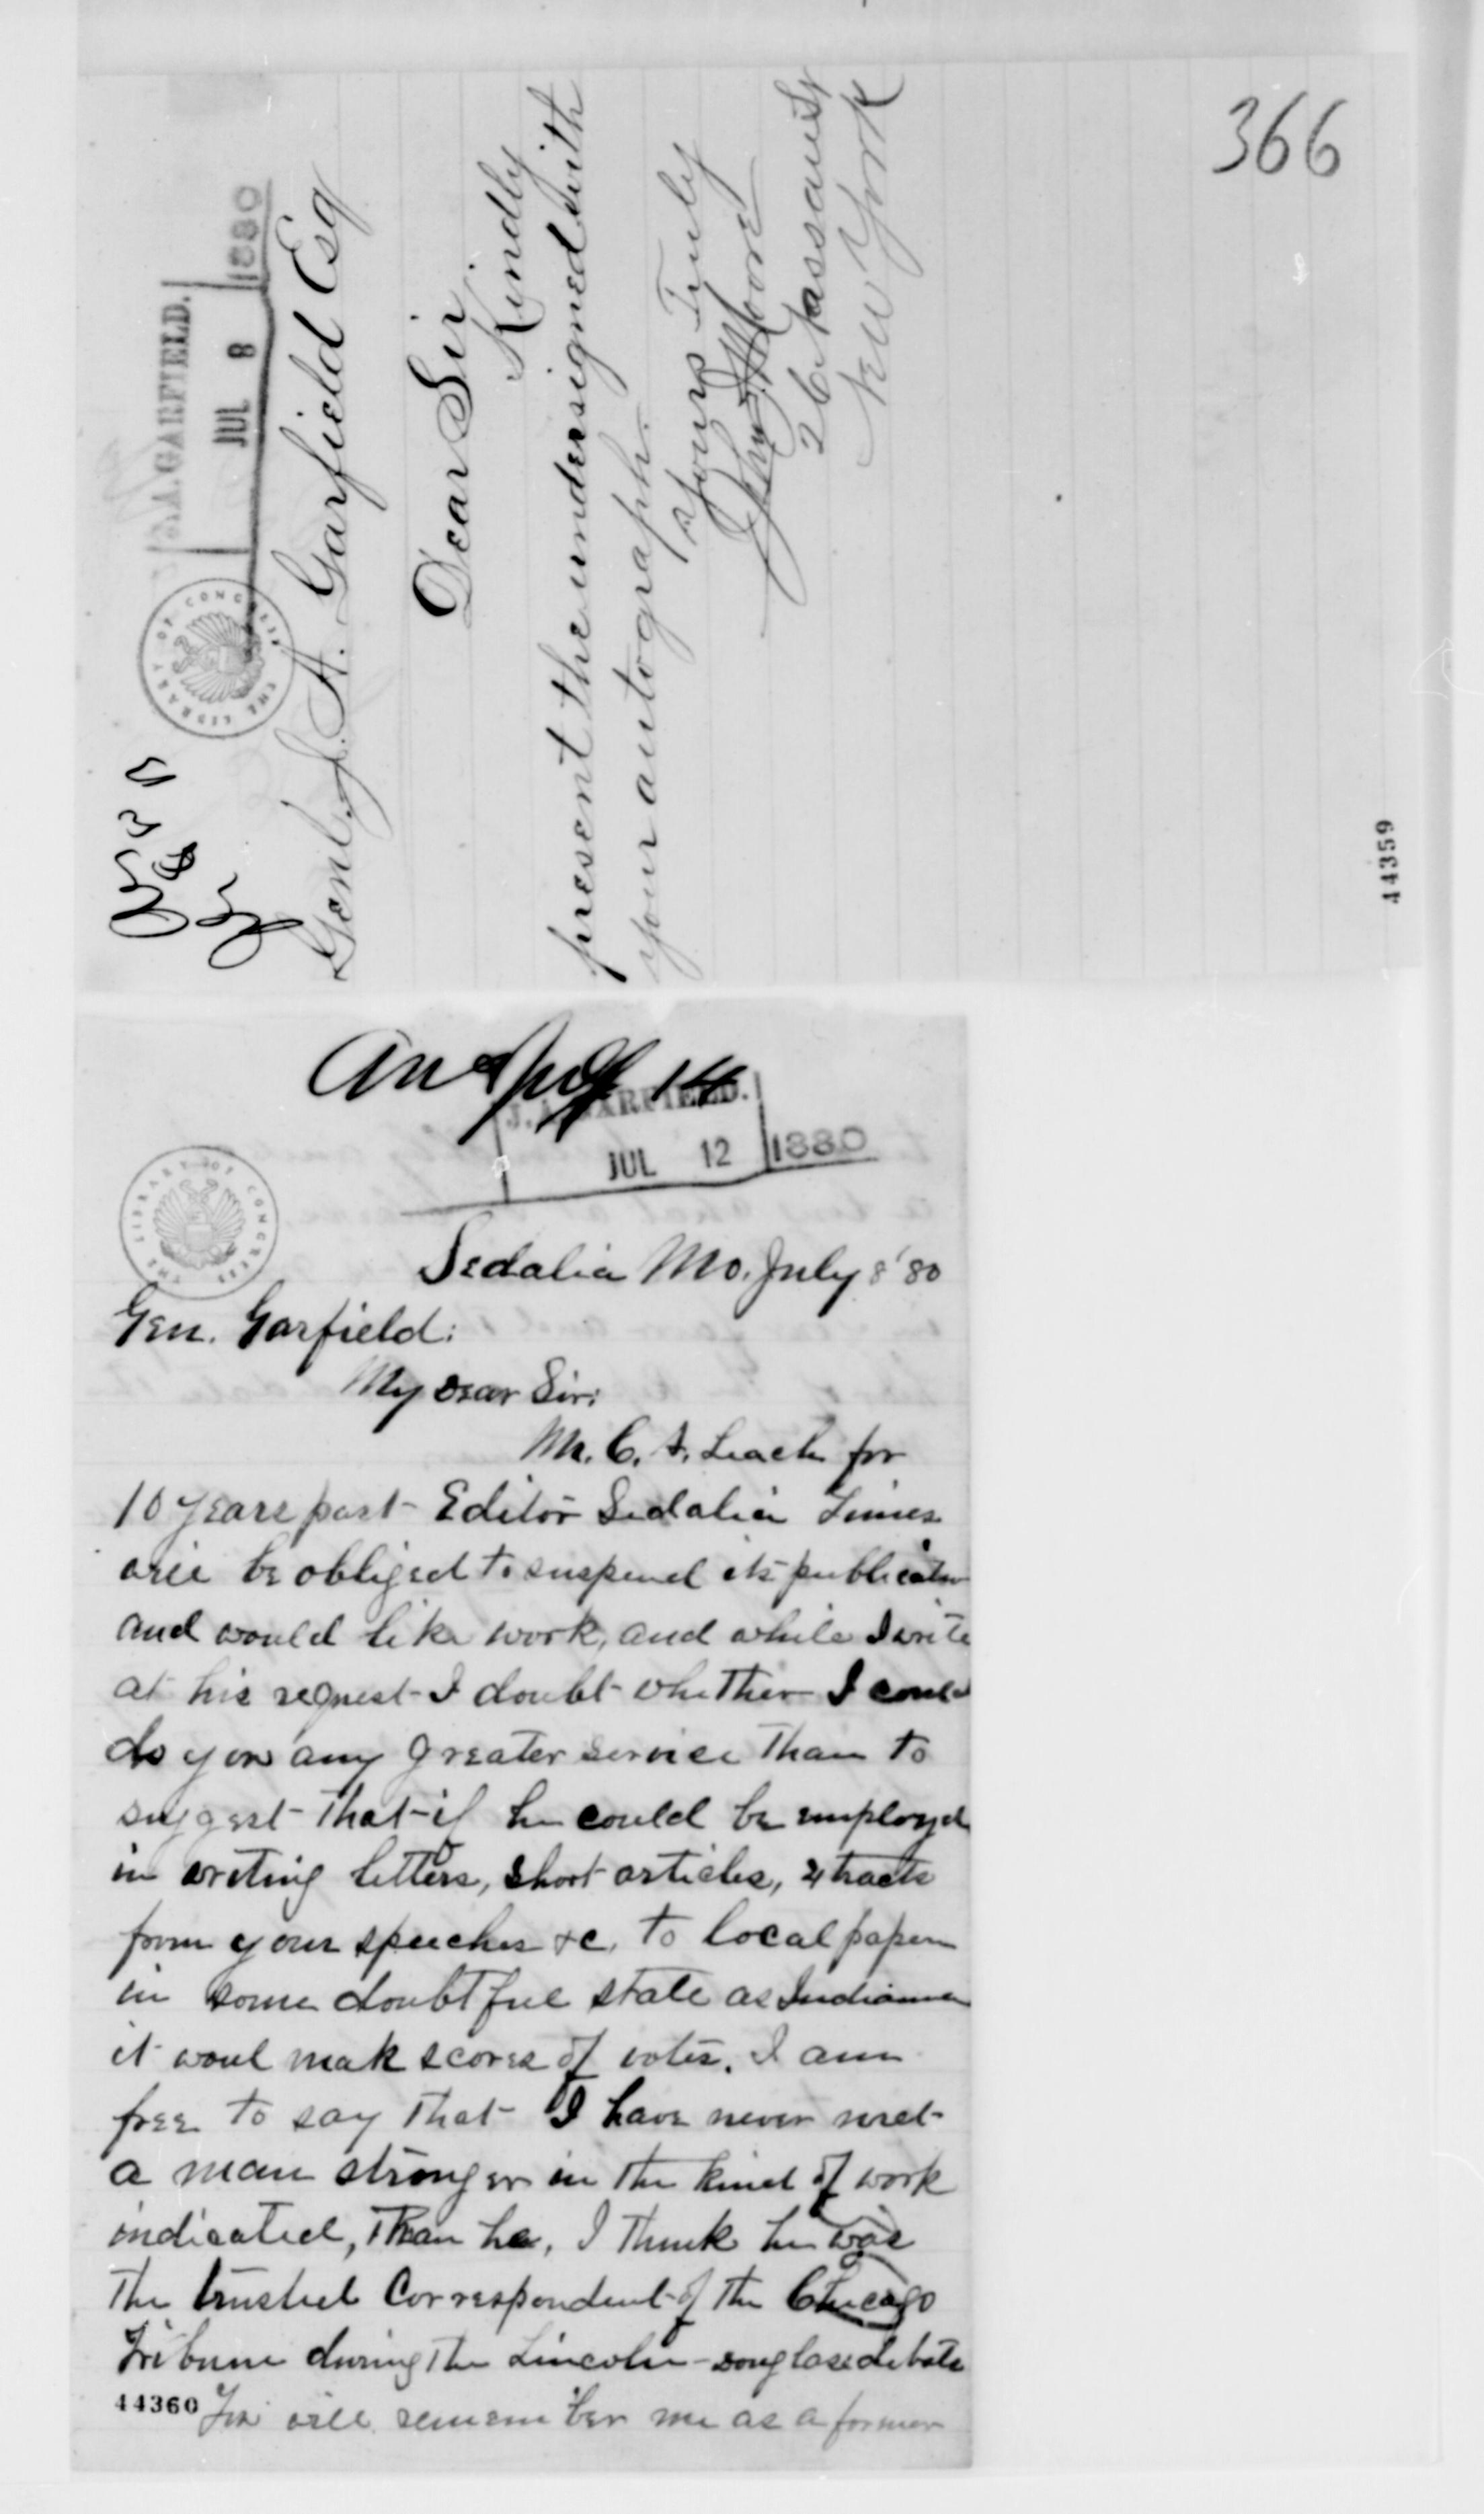 366
J.A. GARFIELD.
JUL 8 1880
THE LIBRARY OF CONGRESS
Genl. J. A. Garfield Esq
Dear Sir
Kindly
present the undersigned with
your autograph.
Yours Truly
John Moore
26 Nassau St
New York
44359
Ansd July 14
J.A. GARFIELD.
JUL 12 1880
THE LIBRARY OF CONGRESS
Sedalia Mo. July 8 '80
Gen. Garfield:
My Dear Sir:
Mr. C. A. Leach for
10 years past Editor Sedalia Times
will be obliged to suspend its publication
and would like work, and while I write
at his request I doubt whether I could
do you any greater service than to
suggest that if he could be employed
in writing letters, short articles, extracts
from your speeches &c, to local papers
in some doubtful state as Indiana
it woul mak scores of votes. I am
free to say that I have never met
a man stronger in the kind of work
indicated, than he, I think he was
the trusted Correspondent of the Chicago
Tribune during the Lincoln-Douglass debate
44360 You will remember me as a former